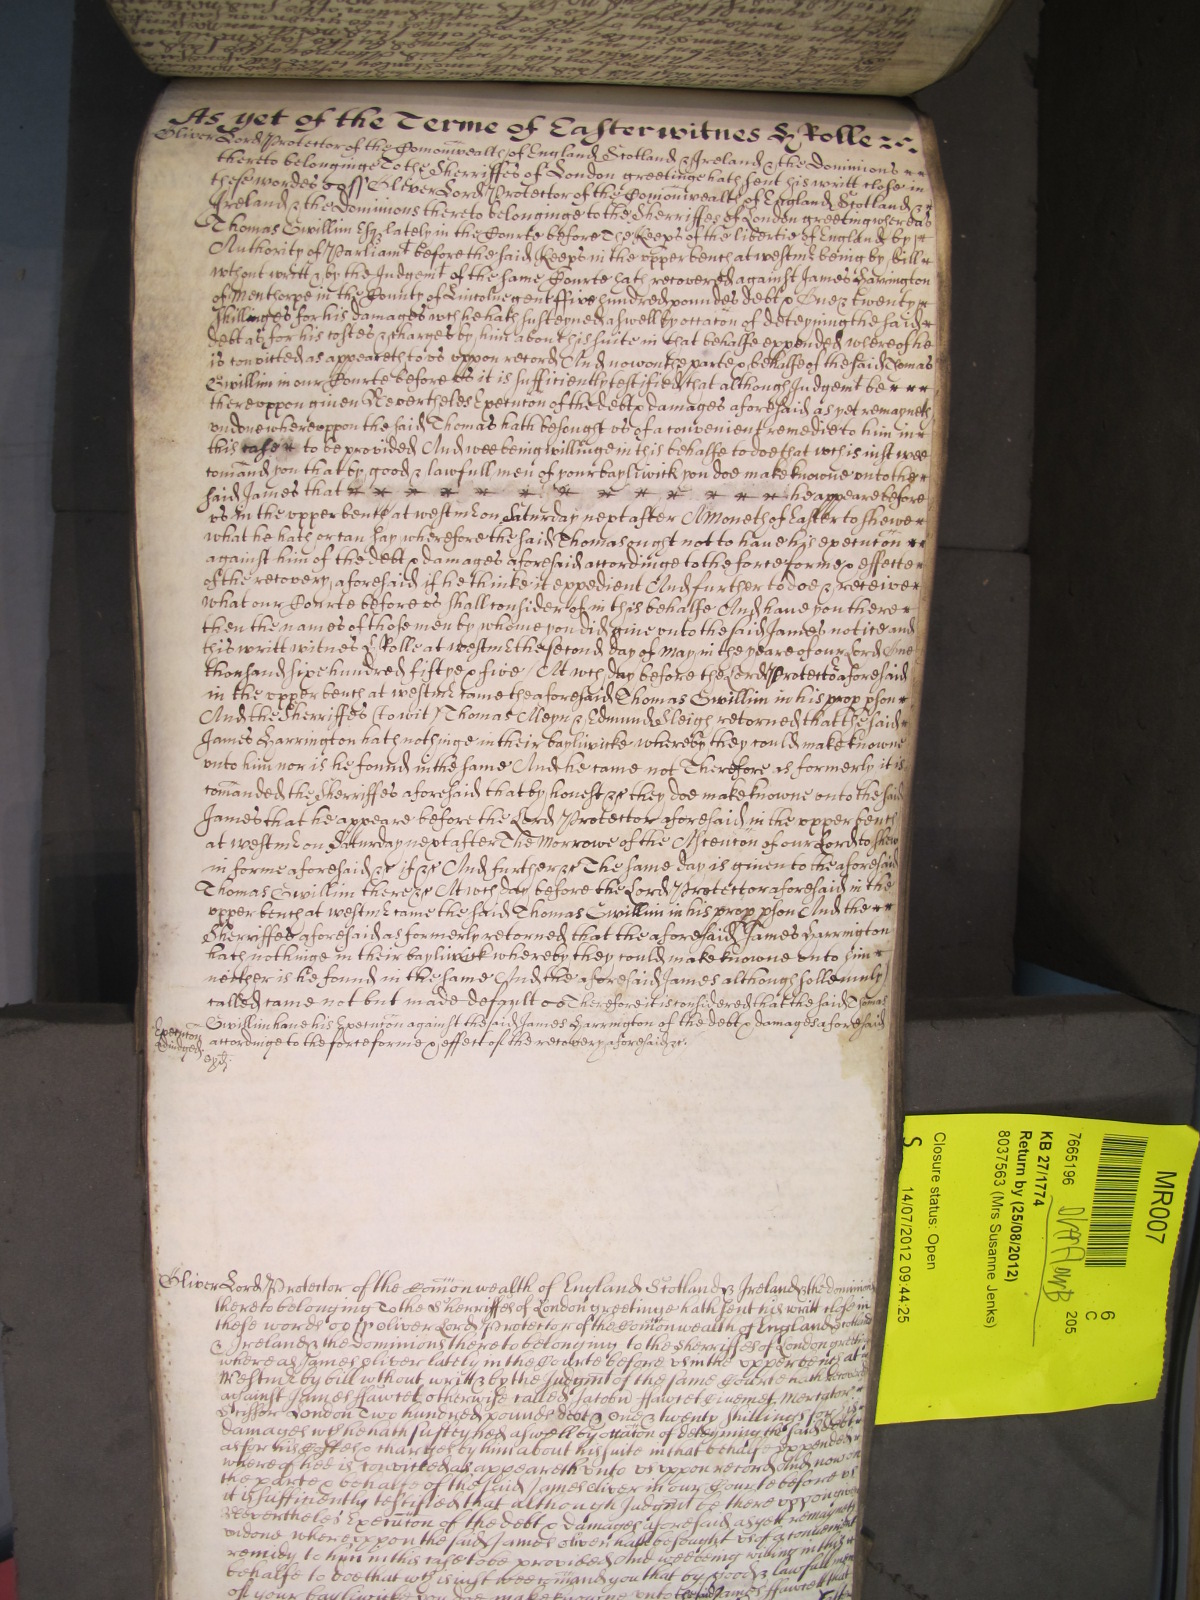 As yet of the Terme of Easter witnes H Rolle &c.
Oliver Lord Protector of the Comonwealth of England Scotland & Ireland & the Dominions
thereto belonginge To the Sherriffes of London greetinge hath sent his writt close in
these wordes ss Oliver Lord Protector of the Comonwealth of England Scotland &
Ireland & the Dominions thereto belonginge to the Sherriffes of London greeting whereas
Thomas Gwillim Esqr lately in the Courte before The Keeps of the libertie of England by
Authority of Parliamt before the said Keeps in the upper bench at westmr being by bill
wthout writt & by the Judgemt of the same Courte hath recovered against James Harrington
of in the County of Lincolne gent ffive hundred poundes debt & One & twenty
shillinges for his damages wch he hath susteyned aswell by occacon of deteyning the said
debt as for his costes & charges by him about his suite in that behalfe expended whereof he
is convicted as appeareth to us uppon record And now on the parte & behalfe of the said Thomas
Gwillim in our Courte before us it is sufficiently testified that although Judgemt be
thereuppon given Nevertheles Execucon of the debt & damages aforesaid as yet remayneth
undone whereuppon the said Thomas hath besought us of a convenient remedie to him in
this case to be provided And wee being willinge in this behalfe to doe that wch is iust wee
comand you that by good & lawfull men of your bayliwick you doe make knowne unto the
said James that he appeare before
us in the upper bench at westmr on Saturday next after A Moneth of Easter to shewe
what he hath or can say wherefore the said Thomas ought not to have his execucon
against him of the debt & damages aforesaid accordinge to the force forme & effecte
of the recovery aforesaid if he thinke it expedient And further to doe & receive
what our Courte before us shall consider of in this behalfe And have you there
then the names of those men by whome you did give unto the said James notice and
this writt witnes H Rolle at westmr the second day of May in the yeare of our Lord One
thousand six hundred fiftye & five / At wch day before the Lord Protector aforesaid
in the upper bench at westmr came the aforesaid Thomas Gwillim in his prop pson
And the Sherriffes (to wit) Thomas Alleyn & Edmund Sleigh retorned that the said
James Harrington hath nothinge in their bayliwicke whereby they could make knowne
unto him nor is he found in the same And he came not Therefore as formerly it is
comanded the Sherriffes aforesaid that by honest &c they doe make knowne unto the said
James that he appeare before the Lord Protector aforesaid in the upper bench
at westmr on Saturday next after The Morrowe of the Ascencon of our Lord to shew
in forme aforesaid &c if &c And further &c The same day is given to the aforesaid
Thomas Gwillim there &c At wch day before the Lord Protector aforesaid in the
upper bench at westmr came the said Thomas Gwillim in his prop pson And the
Sherriffes aforesaid as formerly retorned that the aforesaid James Harrington
hath nothinge in their bayliwick whereby they could make knowne unto him
neither is he found in the same And the aforesaid James although sollemnly
called came not but made default Therefore it is considered that the said Thomas
Gwillim have his Execucon against the said James Harrington of the debt & damages aforesaid
accordinge to the force forme & effect of the recovery aforesaid &c.
Execucon
Adiudged
Oliver Lord Protector of the Comonwealth of England Scotland & Ireland & the dominions
thereto belonging To the Sherriffes of London greetinge hath sent his writt close in
these words ss Oliver Lord Protector of the Comonwealth of England Scotland
& Ireland & the Dominions thereto belonging to the Sherriffes of London greeting
whereas James Oliver lately in the Courte before us in the upper bench at
Westmr by bill wthout writt & by the Judgmt of the same Courte hath recovered
against James ffawcet otherwise called Jacobu ffawcet Civem et Mercator
Scissor London Two hundred pounds debt & one & twenty shillings for his
damages wch he hath susteyned aswell by occacon of deteyning the said debt
as for his Costes & charges by him about his suite in that behalfe expended
whereof hee is convicted as appeareth unto us uppon record And now on
the parte & behalfe of the said James Oliver in our Courte before us
it is sufficiently testified that although Judgmt be there uppon given
Nevertheles Execucon of the debt & damages aforesaid as yett remayneth
undone whereuppon the said James Oliver hath besought us of a convenient
remedy to him in this case to be provided And wee being willing in this
behalfe to doe that wch is iust wee comand you that by good & lawfull men
of your bayliwicke you doe make knowne unto the said James ffawcett that
MR007
6
C
205
7665196
KB 27/1774
Return by (25/08/2012)
8037563 (Mrs Susanne Jenks)
Closure status: Open
S 14/07/2012 09:44:25